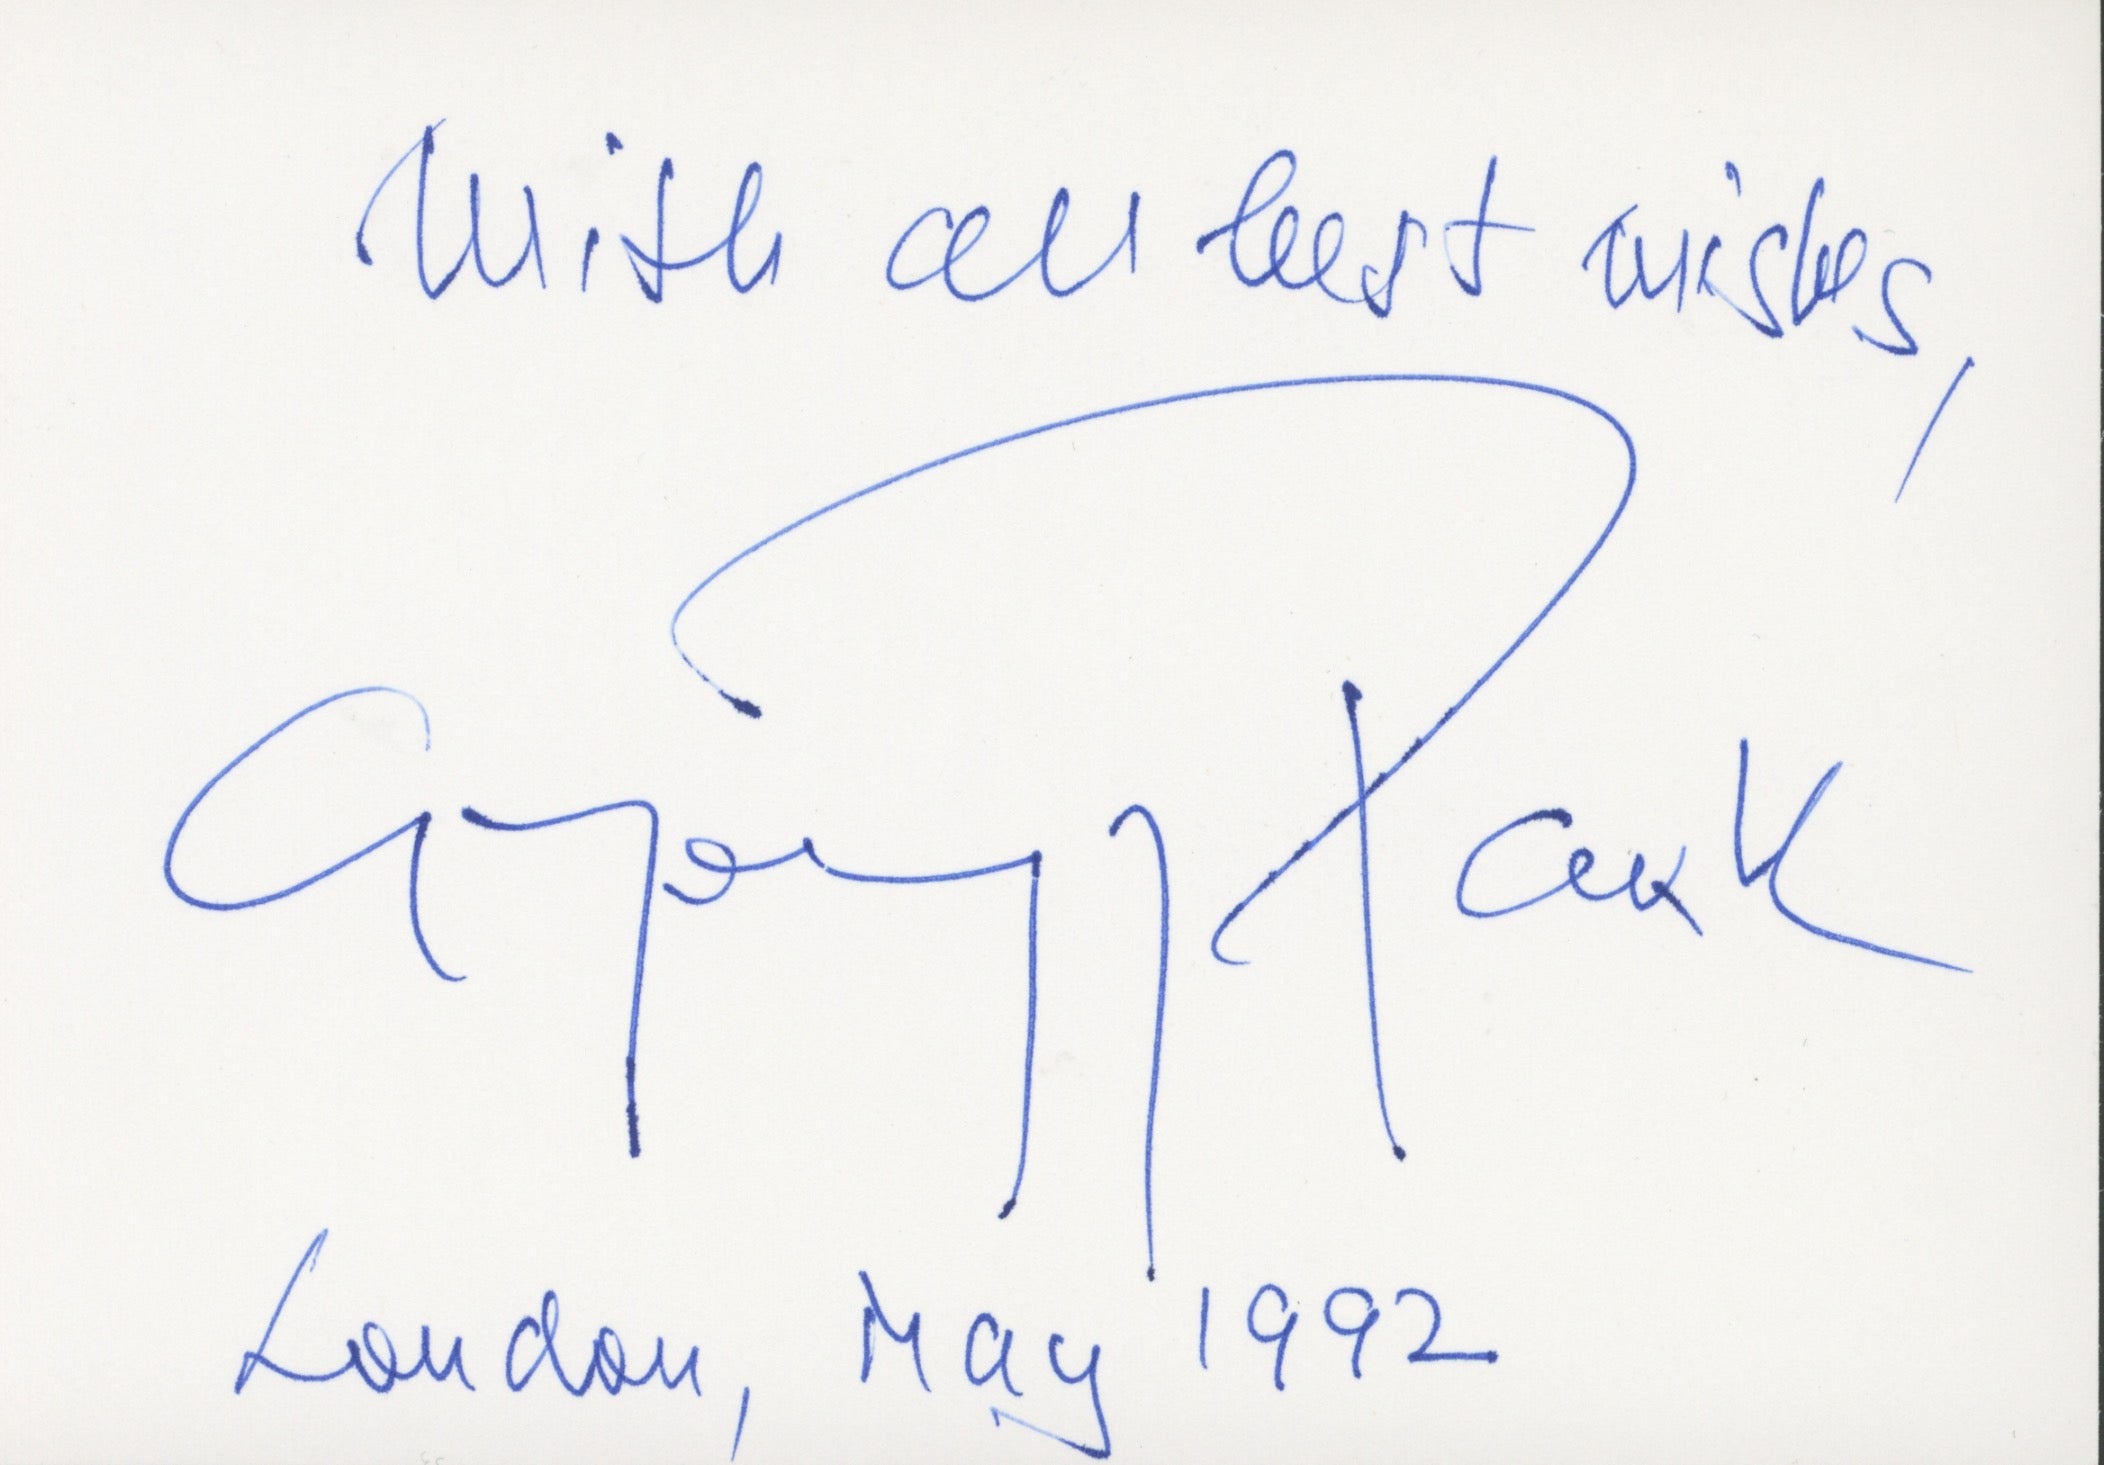 With all best wishes,
György Pauk
London, May 1992